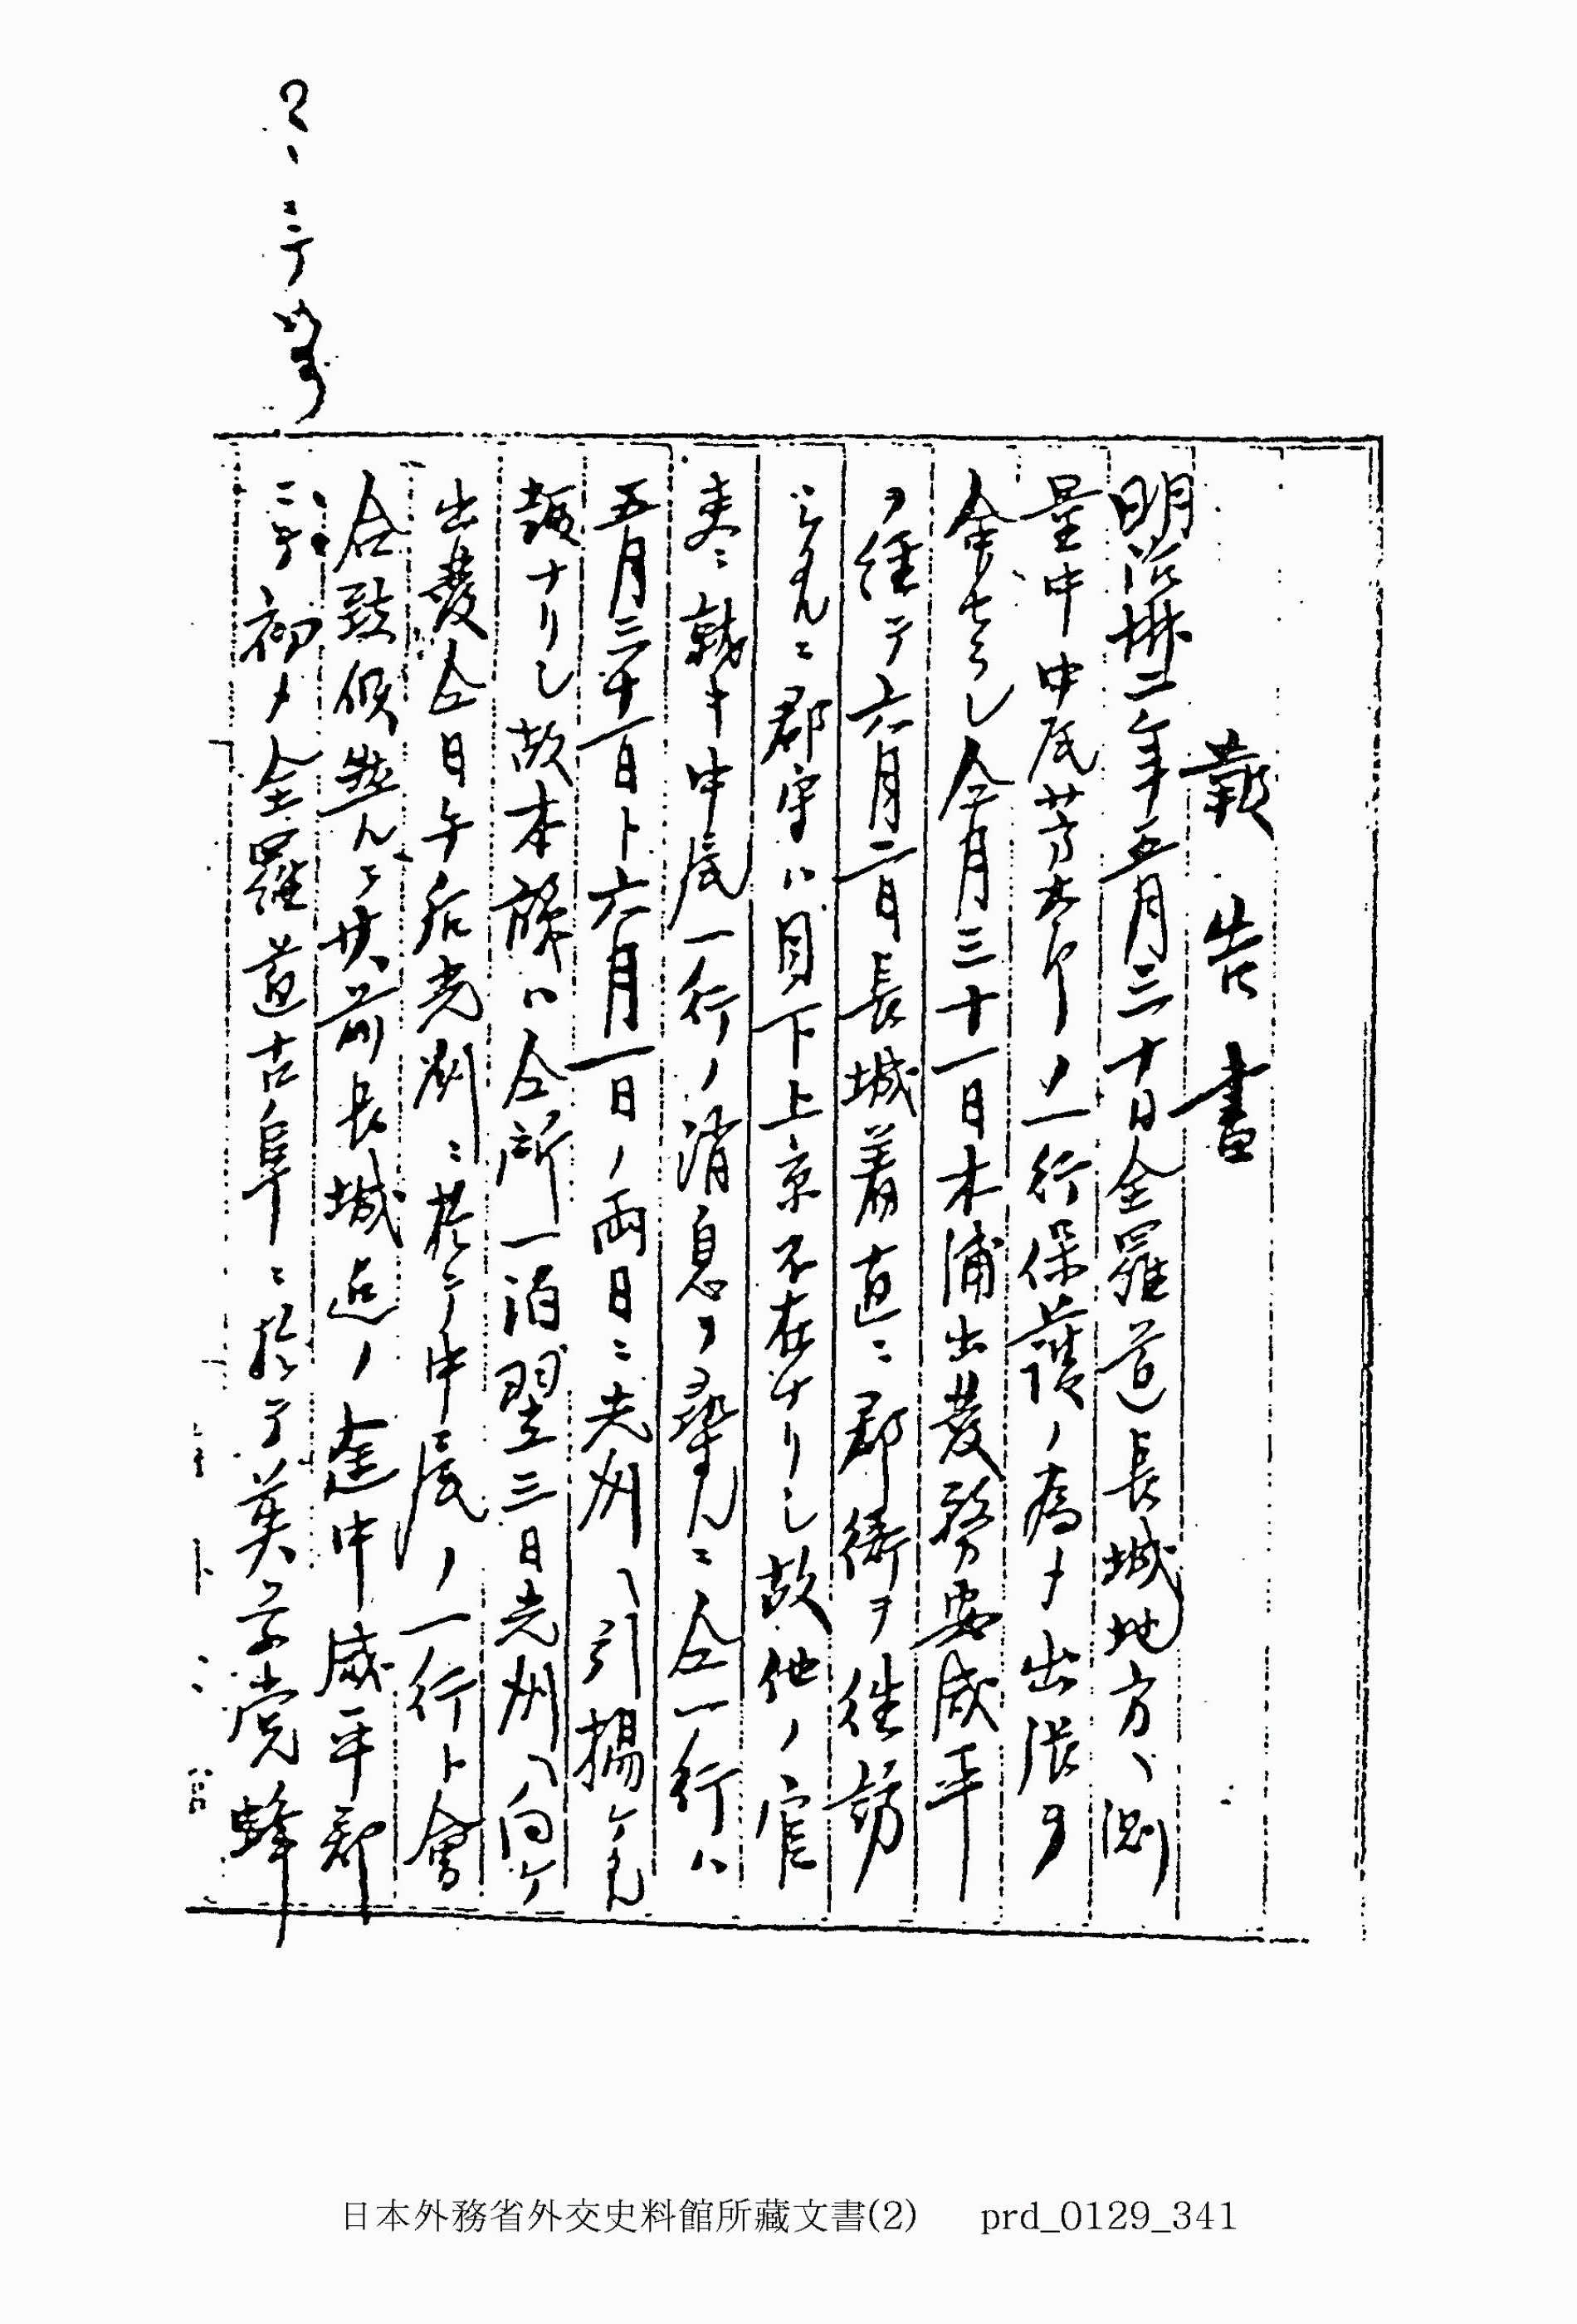 報告書
明治卅二年五月三十日全羅道長城地方ヘ測
量中中尾芳太郎ノ一行保護ノ為メ出張ヲ
命セラレ仝月三十一日木浦出發務安咸平
ヲ経テ六月二日長城着直ニ郡衙ヲ往訪
シタルニ郡守ハ目下上京不在ナリシ故他ノ官
吏ニ就キ中尾一行ノ消息ヲ尋タルニ仝一行ハ
五月三十一日ト六月一日ノ両日ニ光州ヘ引揚ケタル
趣ナリシ故本隊ハ仝所一泊翌三日光州ヘ向ケ
出發仝日午后光州ニ於テ中尾ノ一行ト會
合致候然ルニ其前長城迠ノ途中咸平郡
ニテ初メ全羅道古阜ニ於テ英学党蜂
日本外務省外交史料館所藏文書(2) prd_0129_341